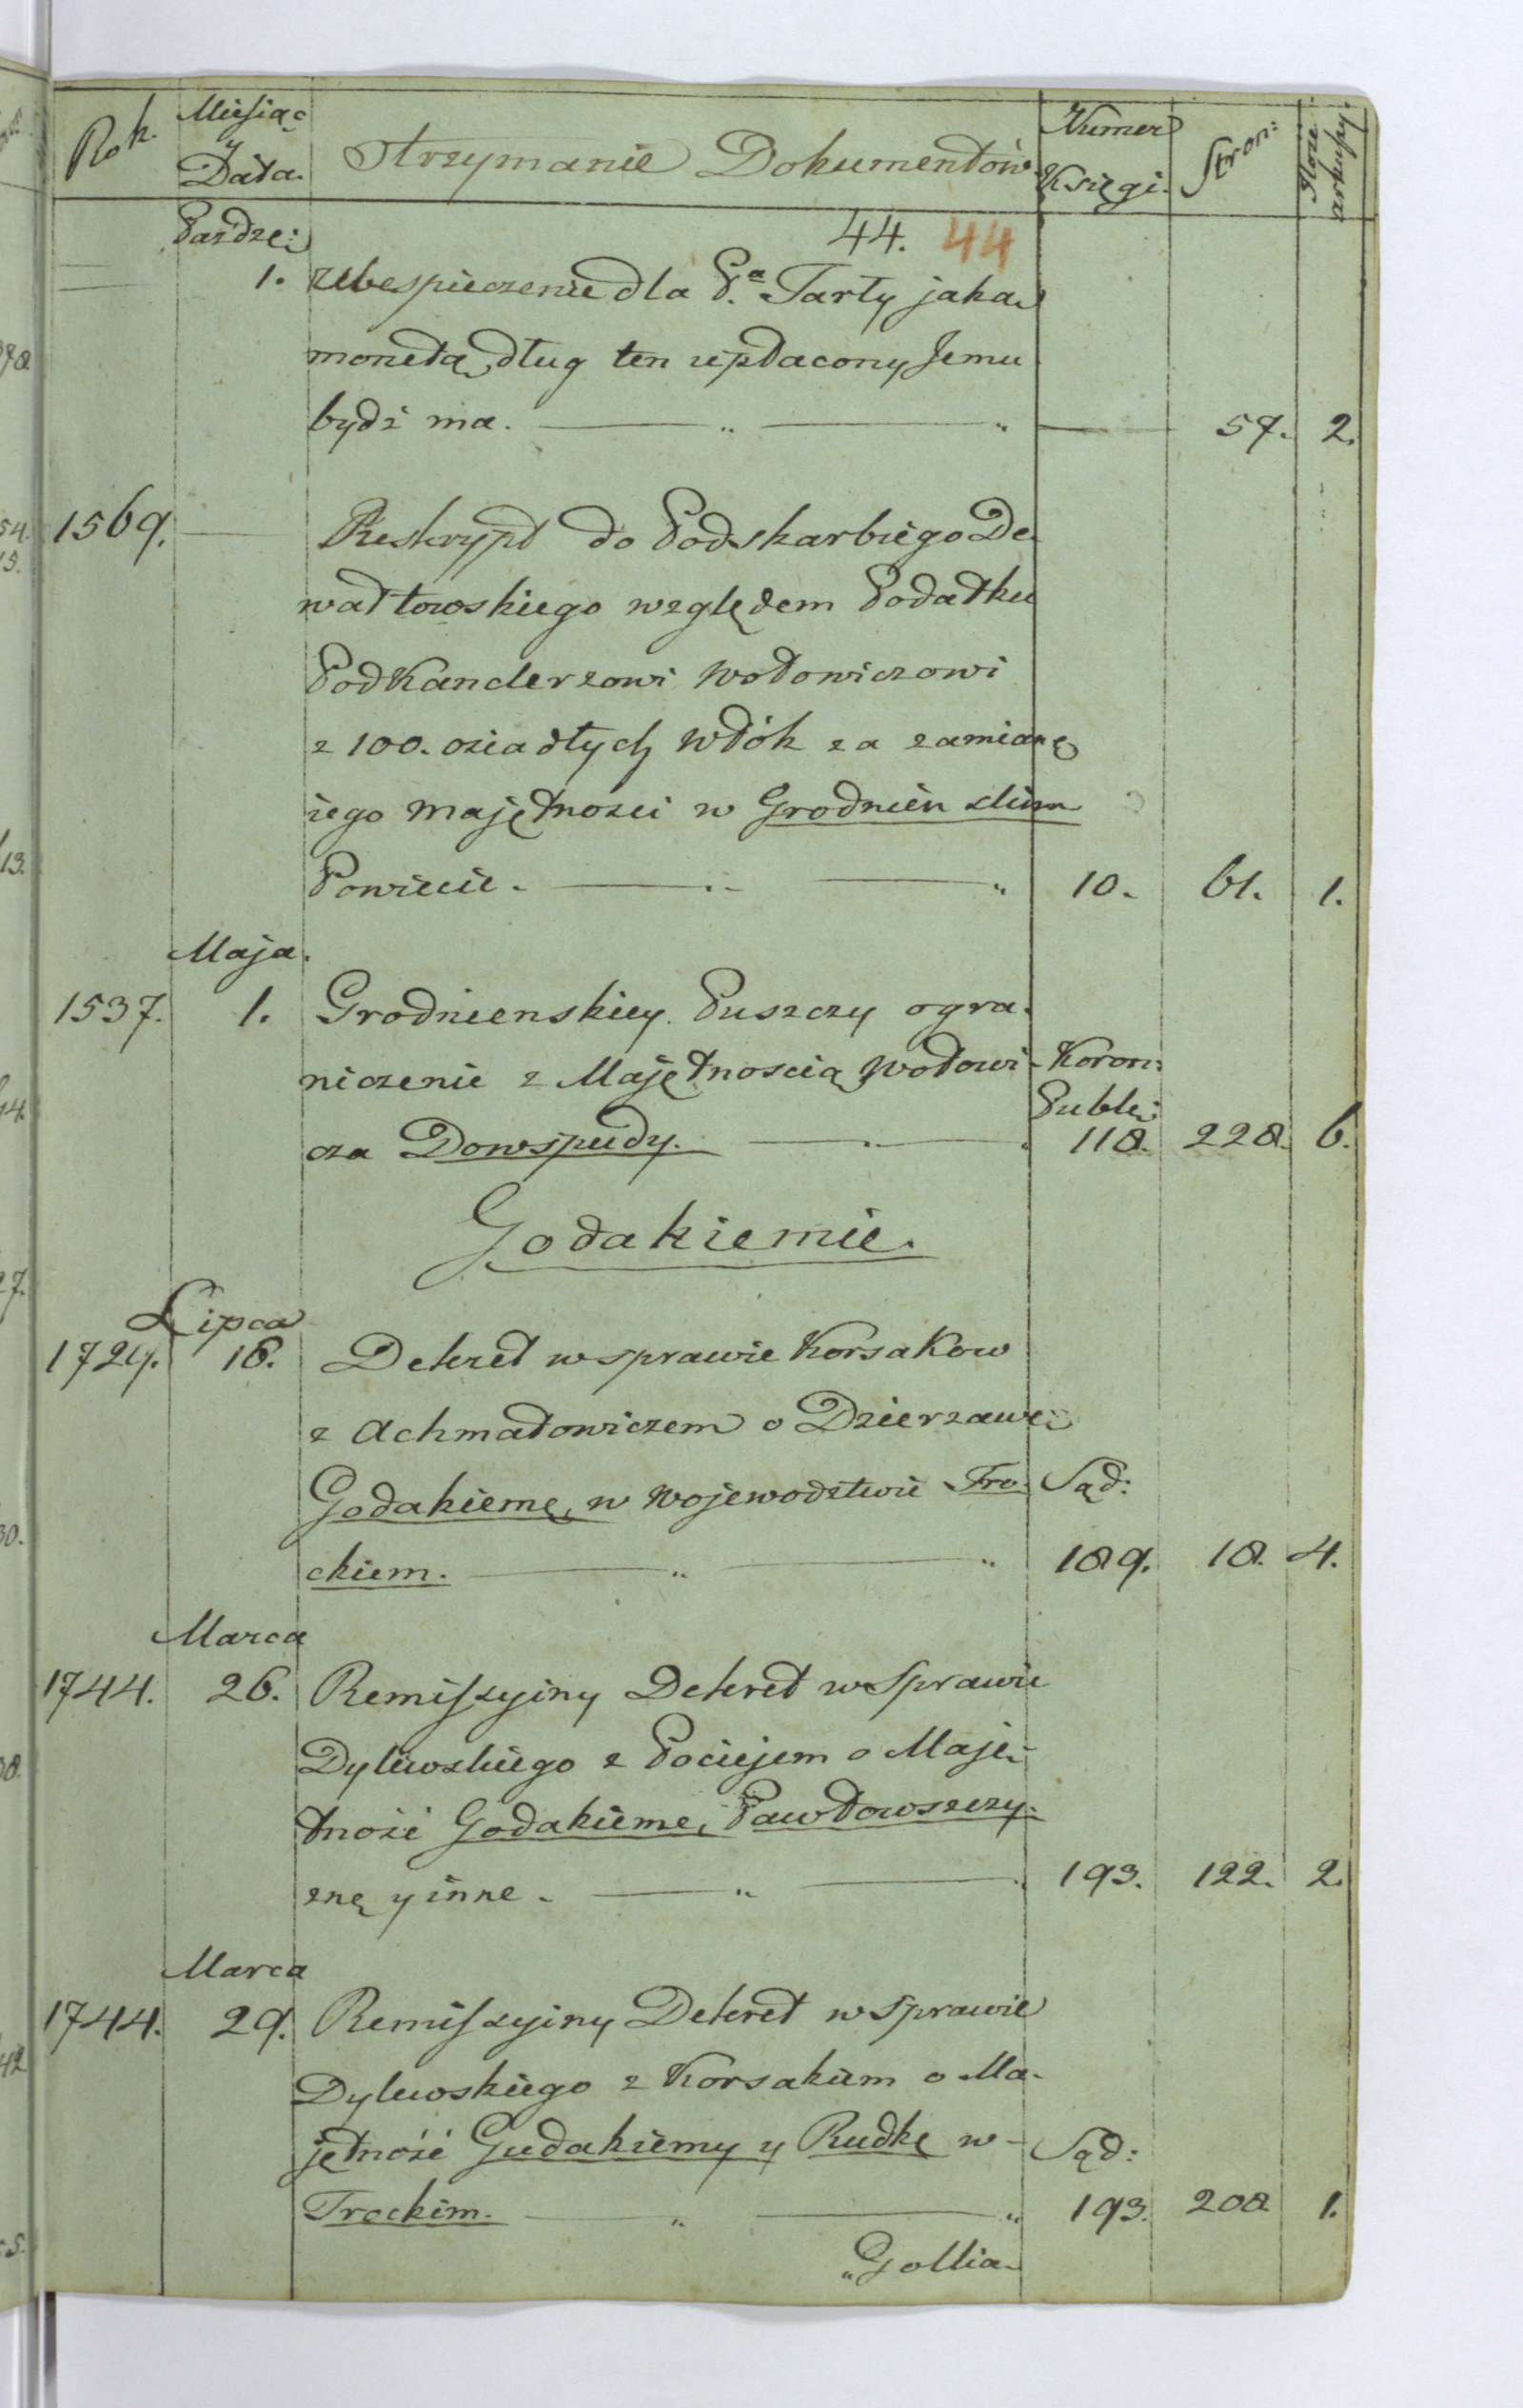 Rok. Miesiąc y Data. Strzymanie Dokumentów Numer Księgi. Stron: Ilość arkuszy.
44. 44
Paźdze:
1. Ubespieczenie dla P.ᵃ Tarły jaka
monetą dług ten upłacony Jemu
bydź ma. 57. 2.
1569. Reskrypt do Podskarbiego De
wałtowskiego względem Podatku
Podkanclerzowi Wołowiczowi
z 100. osiadłych Włók za zamianę
iego Majętnosci w Grodnień skim
Powiecie. 10. 61. 1.
Maja.
1537. 1. Grodnienskiey Puszczy ogra-
niczenie z Majętnoscią Wołowi- Koron:
Publi:
cza Dowspudy. 118. 228. 6.
Godakiemie.
Lipca
1729. 18. Dekret w sprawie Korsakow
z Achmatowiczem o Dzierzawę
Godakieme, w Wojewodztwie Tro- Sąd:
ckiem. 189. 18. 4.
Marca
1744. 26. Remissyiny Dekret w Sprawie
Dylewskiego z Pociejem o Maję-
tność Godakieme, Pawłowszczy-
znę y inne. 193. 122. 2.
Marca
1744. 29. Remissyiny Dekret w Sprawie
Dylewskiego z Korsakiem o Ma-
jętność Gudakiemy y Rudkę w- Sąd:
Trockim. 193. 208 1.
Gollia-